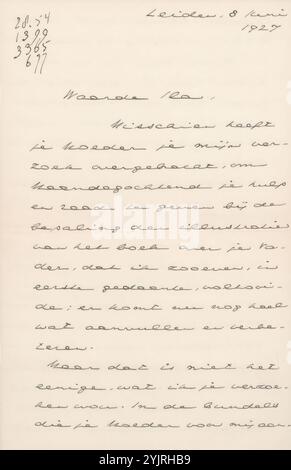 Leiden. 8 Juni
1927
28.54
1399
3365
677
Waarde Ila,
Misschien heeft
je Moeder je mijn ver-
zoek overgebracht, om
Maandagochtend je hulp
en raad te geven bij de
bepaling der illustratie
van het boek over je Va-
der, dat ik zooeven, in
eerste gedaante, voltooi-
de; er komt nu nog heel
wat aanvullen en verbe-
teren.
Maar dat is niet het
eenige, wat ik je verzoe-
ken wou. In de bundels
die je Moeder voor mij aan-
alamy
Image ID: 2YJRHB9
www.alamy.com